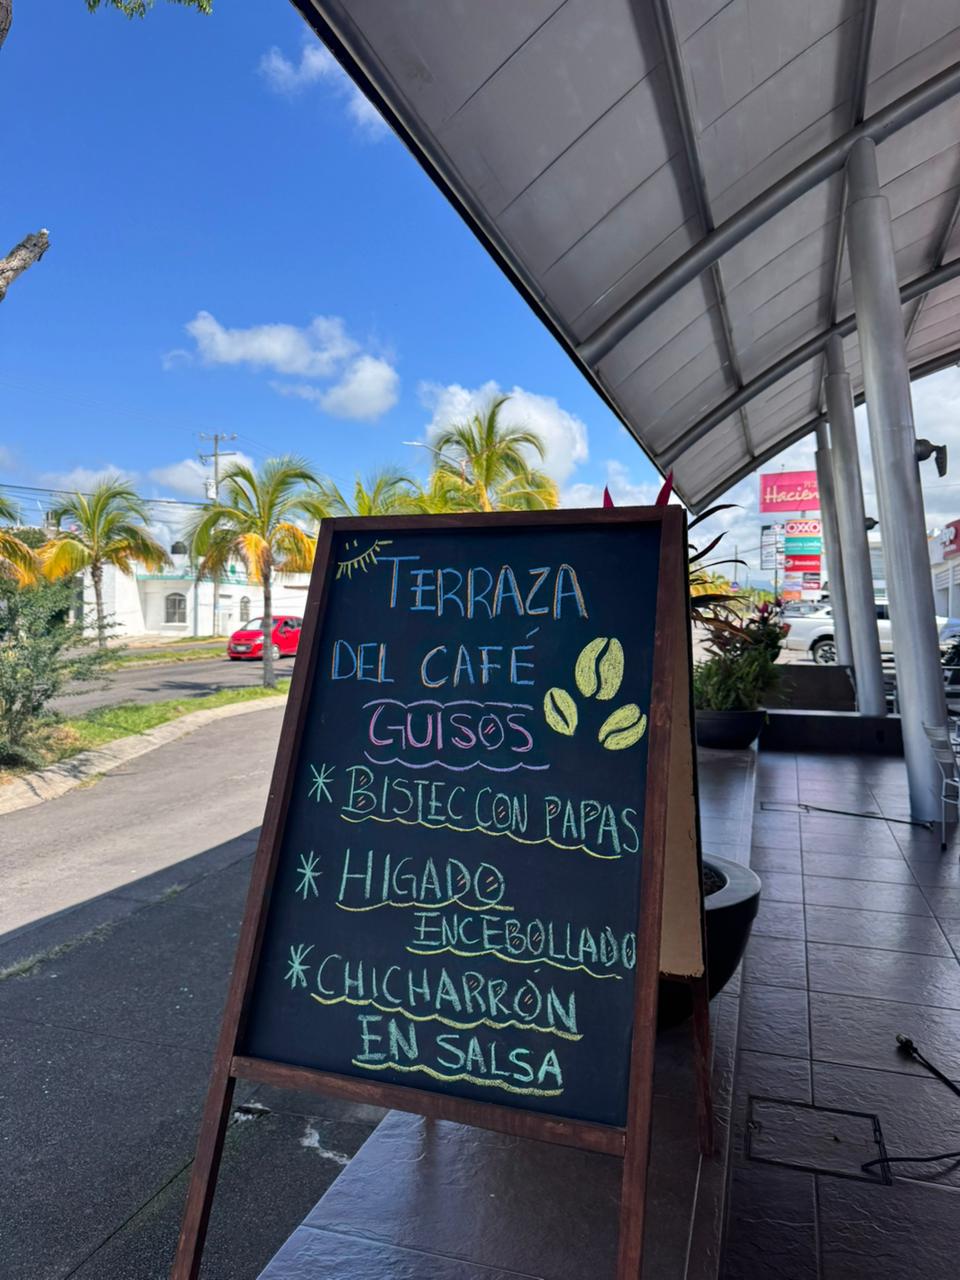 TERRAZA
DEL CAFÉ
GUISOS
* BISTEC CON PAPAS
* HIGADO
ENCEBOLLADO
* CHICHARRÓN
EN SALSA
Hacien
OXXO